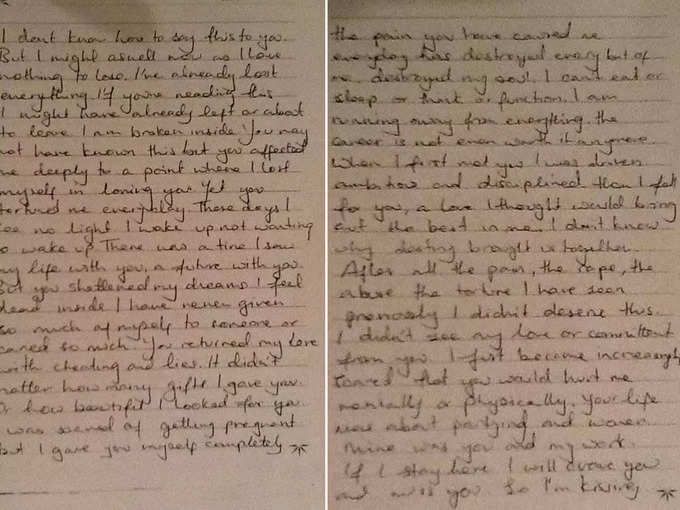 I dont know how to say this to you
But I might aswell now as I have
nothing to lose. I've already lost
everything. If you're reading this
I might have already left or about
to leave. I am broken inside. You may
not have known this but you affected
me deeply to a point where I lost
myself in loving you. Yet you
tortured me everyday. These days I
see no light I wake up not wanting
to wake up. There was a time I saw
my life with you, a future with you.
But you shattered my dreams. I feel
dead inside. I have never given
so much of myself to someone or
cared so much. You returned my love
with cheating and lies. It didn't
matter how many gifts I gave you
or how beautiful I looked for you.
I was scared of getting pregnant
but I gave you myself completely
the pain you have caused me
everyday has destroyed every bit of
me, destroyed my soul. I can't eat or
sleep or think or function. I am
running away from everything. the
career is not even worth it anymore.
When I first met you I was driven
ambitious and disciplined. Then I fell
for you, a love I thought would bring
out the best in me. I don't know
why destiny brought us together.
After all the pain, the rape, the
abuse the torture I have seen
previously I didn't deserve this.
I didn't see any love or commitment
from you. I just became increasingly
scared that you would hurt me
mentally or physically. Your life
was about partying and women.
mine was you and my work.
If I stay here I will crave you
and miss you. So I'm kissing